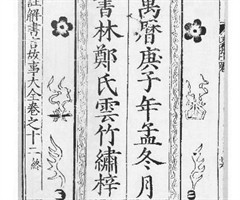 萬曆庚子年孟冬月
書林鄭氏雲竹繡梓
註解書言故事大全卷之十二終